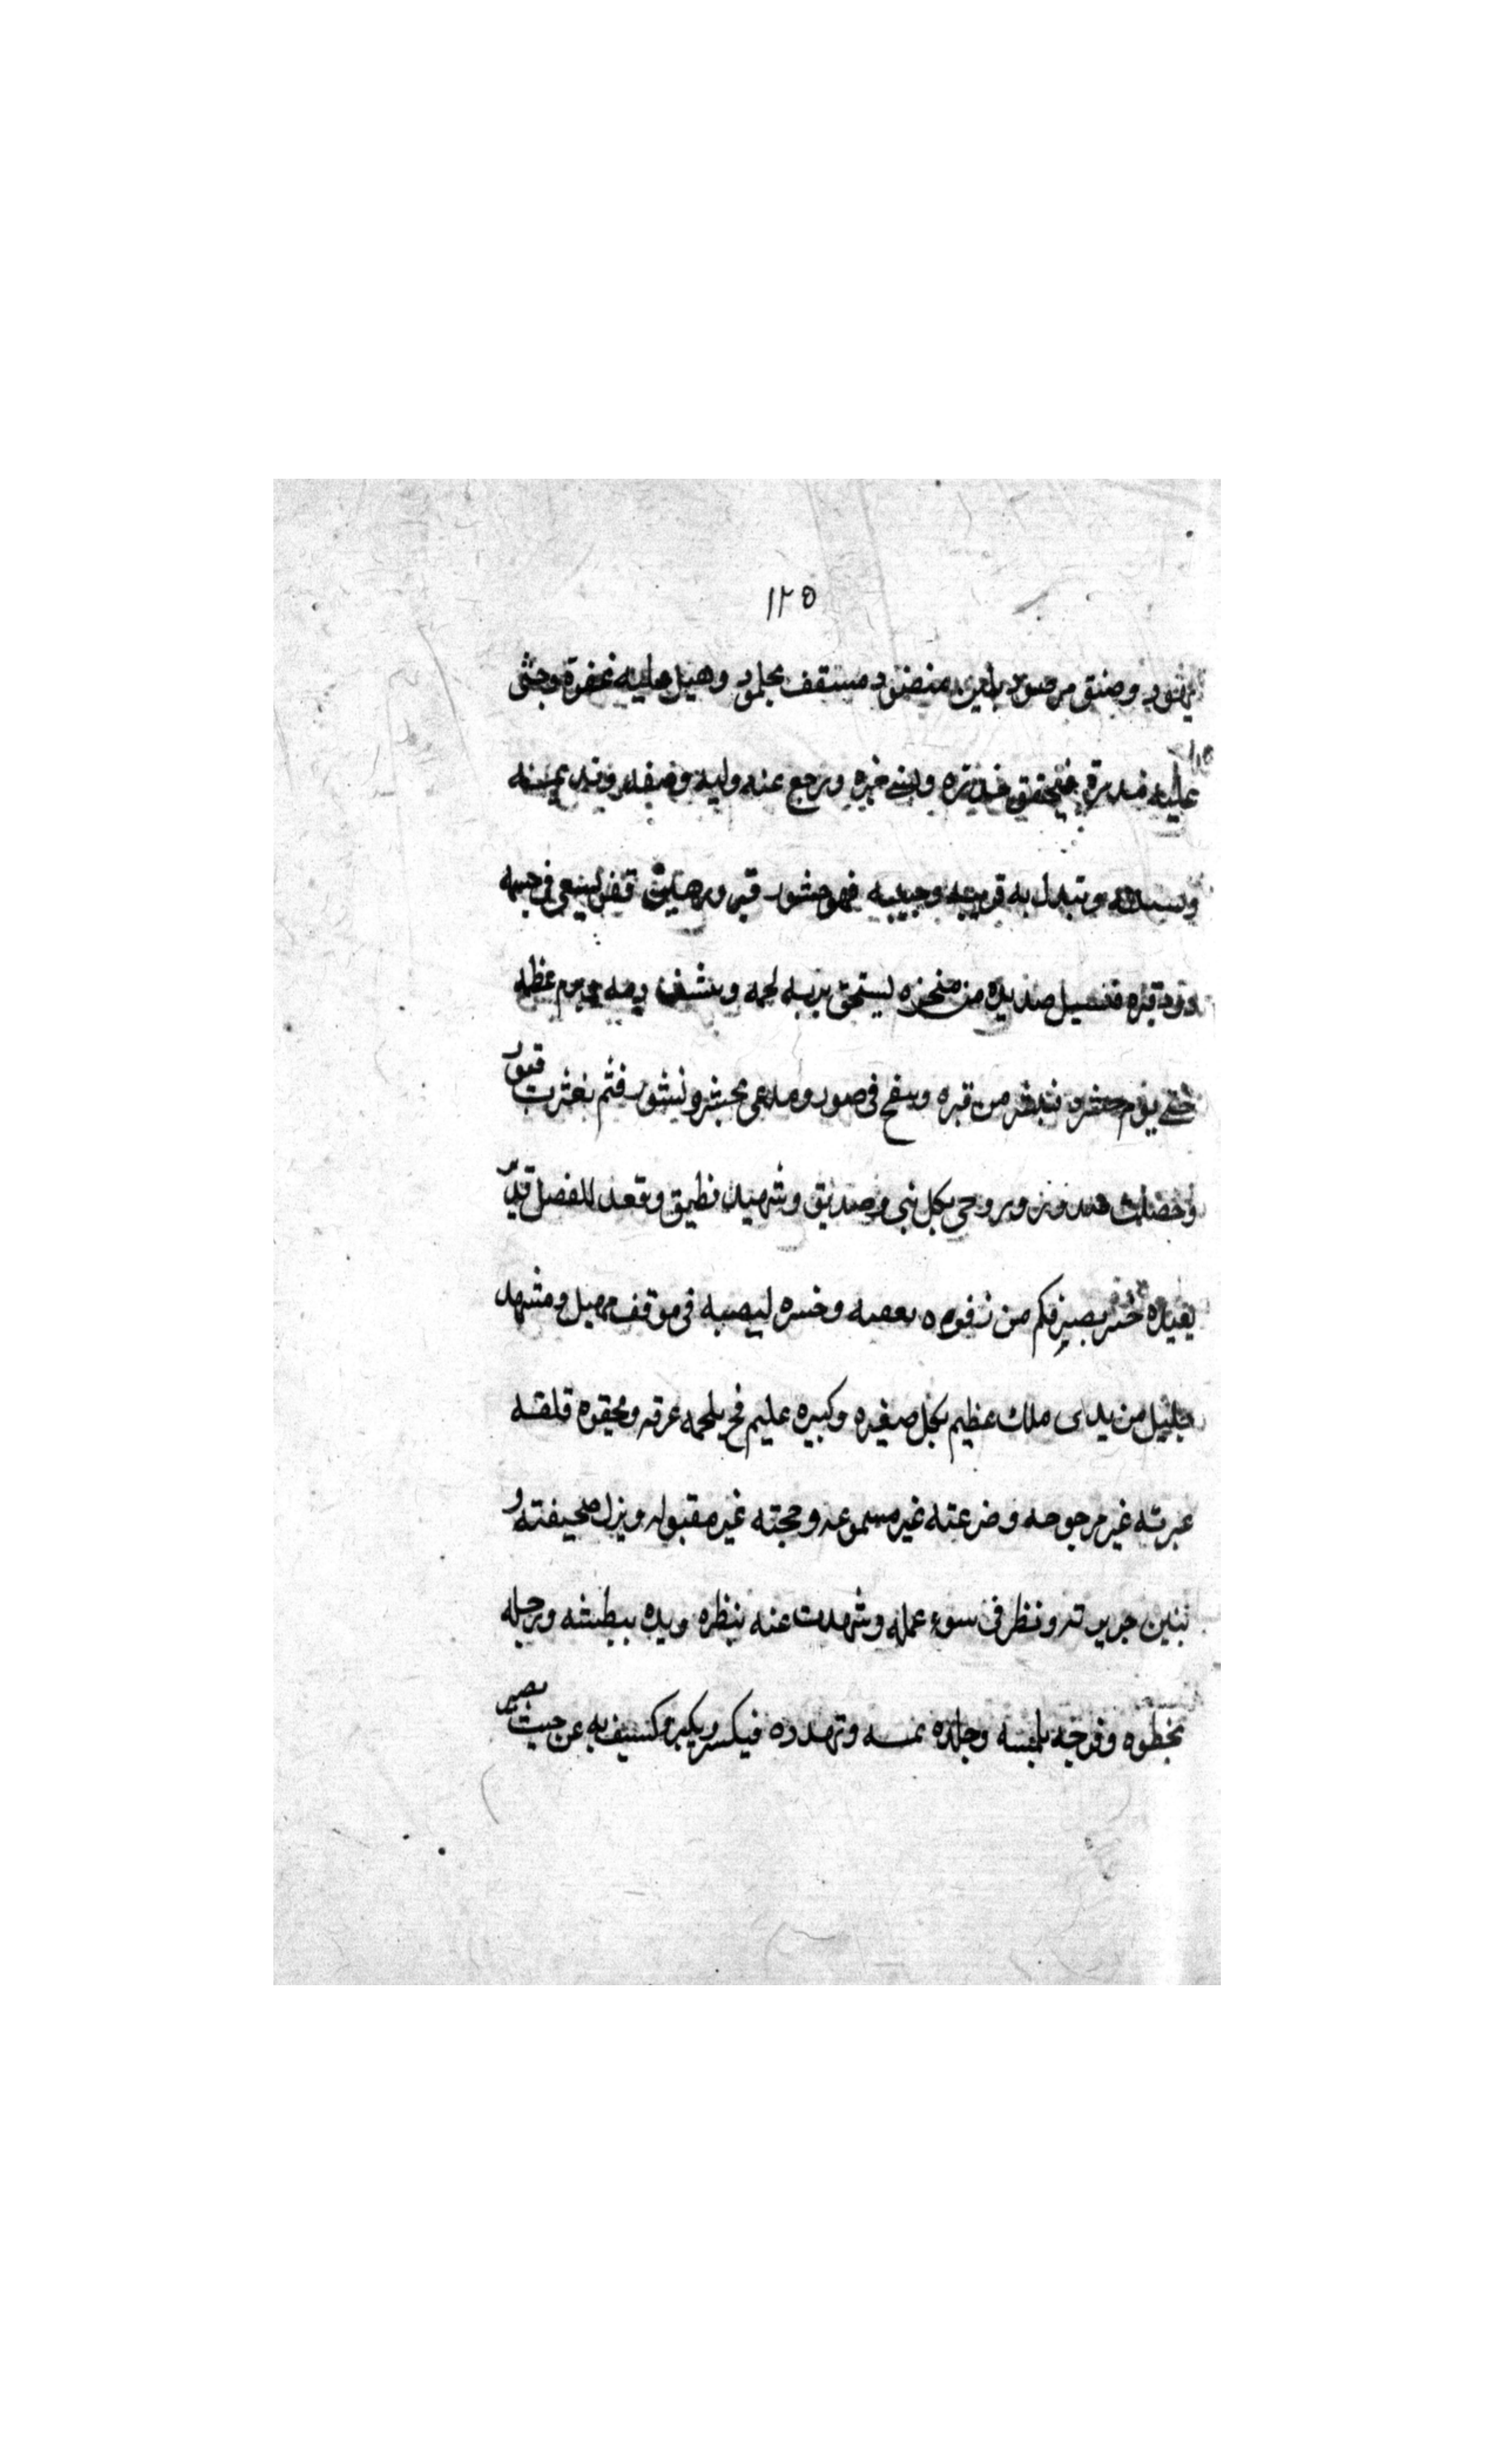 ١٢٥
وضيق مرصود بلبن منضود مسقف بجلمود وهيل عليه عفرة وحثى
عليه مدره فتحقق حذره ونسي خبره ورجع عنه وليه وصفيه ونديمه
ونسيبه وتبدل به قرينه وحبيبه فهو حشو قبر ورهين قفر يسعى في جسمه
دود قبره ويسيل صديده من منخره ليسحق تربه لحمه وينشف دمه ويرم عظمه
حتى يوم حشره فينشر من قبره وينفخ في صور ويدعى بحشر ونشور فثم بعثرت قبور
وحصلت صدور وجيء بكل نبي وصديق وشهيد نطيق وقعد للفصل قدير
بعبده خبير بصير فكم من زفرة وحسرة في موقف مهيل ومشهد
جليل بين يدي ملك عظيم بكل صغيره وكبيره عليم فح يلجمه عرقه قلقه
عبرته غير مرحومه وضرعته غير مسموعه وحجته غير مقبوله صحيفته و
تبين جريرته ونظر في سوء عمله وشهدت عينه بنظره ويده ببطشه ورجله
بخطوه وفرجه بلمسه وجلده بمسه وتهدده منكر ونكير وكشف به عن حيث يصير